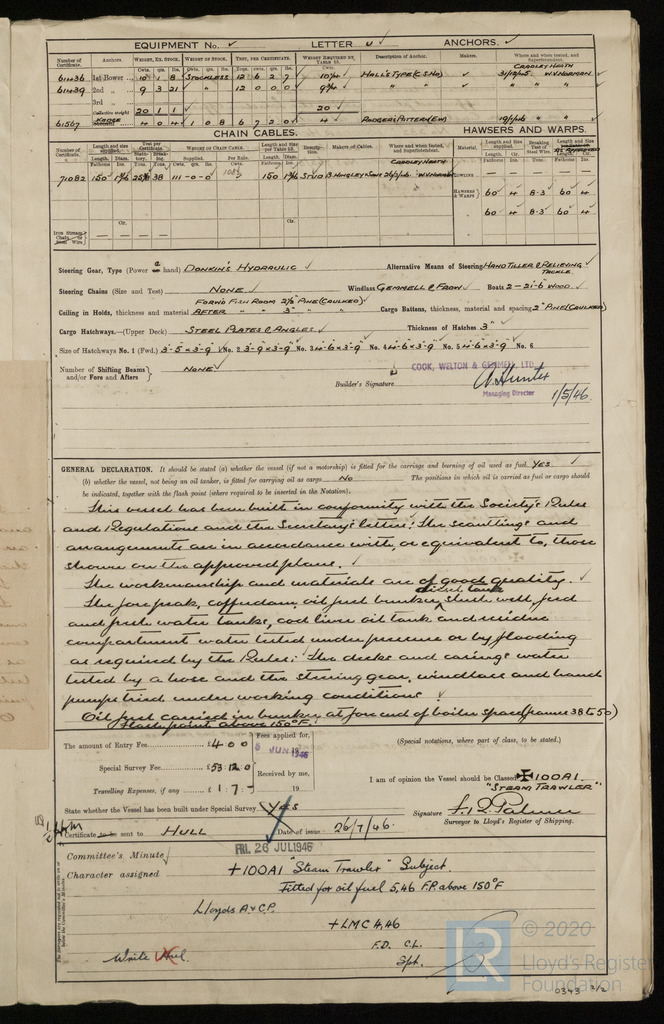 EQUIPMENT No. ✓ LETTER U ✓ ANCHORS. ✓
Number of Certificate. Anchors. WEIGHT, EX. STOCK. WEIGHT OF STOCK. TEST, PER CERTIFICATE. WEIGHT REQUIRED BY TABLE 53. Description of Anchor. Makers. Where and when tested, and Superintendent.
CRADLEY HEATH
61436 1st Bower 10 1 8 STOCKLESS 12 6 2 7 HALL'S TYPE (C.S.HD) ✓ W.V. NORMAN.
61439 2nd " 9 3 21 " 12 0 0 0 " " ✓ " "
3rd "
Collective weight 20 1 1 ✓ 20
61567 KEDGE 4 0 4 1 0 8 6 7 2 0 4 RODGER'S PATTERN
CHAIN CABLES. HAWSERS AND WARPS.
Number of Certificate. Length and size supplied. Test per Certificate. WEIGHT OF CHAIN CABLE. Length and size per Table 53. Description. Makers of Cables. Where and when tested, and Superintendent. Material. Length and size supplied. Breaking Test of Steel Wire. Length and Size
CRADLEY HEATH
71082 150 38 111-0-0 108¾ 150 STUD
HAWSERS & WARPS 60 4 8·3 60 4
60 4 8·3 60 4
Iron Stream Chain or Steel Wire
Steering Gear, Type (Power or hand) DONKIN'S HYDRAULIC ✓ Alternative Means of Steering HAND TILLER & RELIEVING TACKLE.
Steering Chains (Size and Test) NONE Windlass GEMMELL & FROW ✓ Boats 2-21'-6" WOOD
FORWD FISH ROOM 2½" PINE (CAULKED)
Ceiling in Holds, thickness and material AFTER " " 3" " " Cargo Battens, thickness, material and spacing 2" PINE (CAULKED)
Cargo Hatchways.—(Upper Deck) STEEL PLATES & ANGLES ✓ Thickness of Hatches 3" ✓
Size of Hatchways No. 1 (Fwd.) 3'-5"x3'-9" No. 2 3'-9"x3'-9" No. 3 4'-6"x3'-9" No. 4 4'-6"x3'-9" No. 5 4'-6"x3'-9" No. 6
Number of Shifting Beams and/or Fore and Afters } NONE ✓
Builder's Signature COOK, WELTON & GEMMELL LTD.
W. Hunter
Managing Director 1/5/46.
GENERAL DECLARATION. It should be stated (a) whether the vessel (if not a motorship) is fitted for the carriage and burning of oil used as fuel YES ✓
(b) whether the vessel, not being an oil tanker, is fitted for carrying oil as cargo NO The positions in which oil is carried as fuel or cargo should
be indicated, together with the flash point (where required to be inserted in the Notation).
This vessel has been built in conformity with the Society's Rules
and Regulations and the Secretary's letters: The scantlings and
arrangements are in accordance with, or equivalent to, those
shown on the approved plans. ✓
The workmanship and materials are of good quality. ✓
diesel tank
The fore peak, cofferdam, oil fuel bunker, slush well, feed
and fresh water tanks, cod liver oil tank and residue
compartment water tested under pressure or by flooding
as required by the Rules; The decks and casings water
tested by a hose and the steering gear, windlass and hand
pumps tried under working conditions ✓
Oil fuel carried in bunker at fore end of boiler space (frames 38 to 50)
Flash point above 150°F.
The amount of Entry Fee £4 0 0 Fees applied for,
5 JUN 1946
Special Survey Fee £53 12 0 Received by me,
Travelling Expenses, if any £1 7 - 19
(Special notations, where part of class, to be stated.)
I am of opinion the Vessel should be Classed ✠100A1
"STEAM TRAWLER"
State whether the Vessel has been built under Special Survey YES
Signature
Surveyor to Lloyd's Register of Shipping.
Certificate to be sent to HULL Date of issue 26/7/46.
Committee's Minute FRI. 26 JUL 1946
Character assigned +100A1 "Steam Trawler" Subject.
Fitted for oil fuel 5,46 F.P. above 150°F
Lloyds A & C.P.
+LMC 4,46
F.D. C.L.
Spt.
Write Hul.
© 2020
LR Lloyd's Register Foundation
0343 2/2